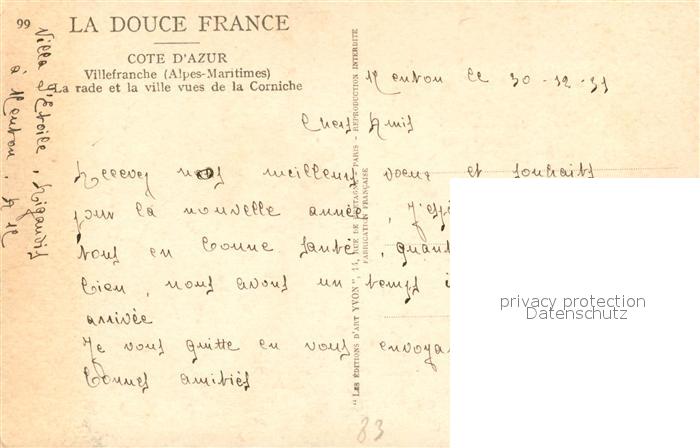 99
LA DOUCE FRANCE
COTE D'AZUR
Villefranche (Alpes-Maritimes)
La rade et la ville vues de la Corniche
Menton le 30-12-31
Chers Amis
Recevez nos meilleurs voeux et souhaits
pour la nouvelle année, J'esp
vous en bonne santé, quant
bien, nous avons un temps
arrivée
Je vous quitte en vous envoya
bonnes amitiés
Villa l'Etoile,
à Menton, A M
"LES ÉDITIONS D'ART YVON", 14, RUE DE BRETAGNE, PARIS - REPRODUCTION INTERDITE
FABRICATION FRANÇAISE
privacy protection
Datenschutz
83